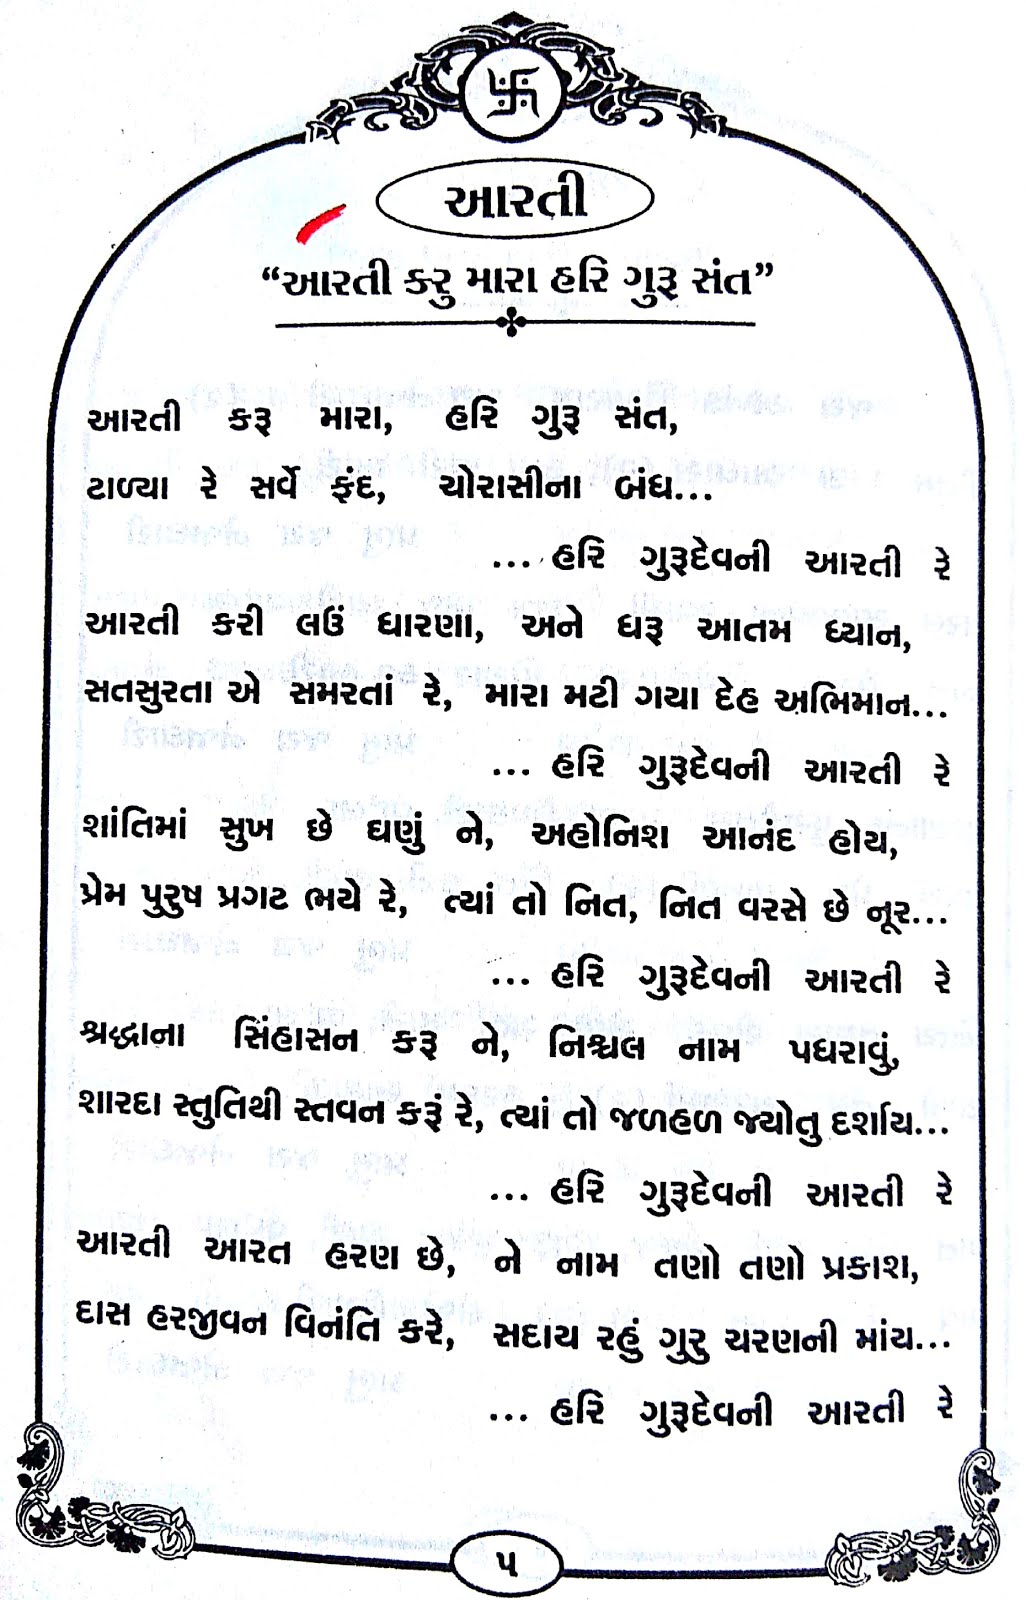 આરતી
“આરતી કરુ મારા હરિ ગુરૂ સંત”
આરતી કરૂ મારા, હરિ ગુરૂ સંત,
ટાળ્યા રે સર્વે ફંદ, ચોરાસીના બંધ...
... હરિ ગુરૂદેવની આરતી રે
આરતી કરી લઉં ધારણા, અને ધરૂ આતમ ધ્યાન,
સતસુરતા એ સમરતાં રે, મારા મટી ગયા દેહ અભિમાન...
... હરિ ગુરૂદેવની આરતી રે
શાંતિમાં સુખ છે ઘણું ને, અહોનિશ આનંદ હોય,
પ્રેમ પુરુષ પ્રગટ ભયે રે, ત્યાં તો નિત, નિત વરસે છે નૂર...
... હરિ ગુરૂદેવની આરતી રે
શ્રદ્ધાના સિંહાસન કરૂ ને, નિશ્ચલ નામ પધરાવું,
શારદા સ્તુતિથી સ્તવન કરૂં રે, ત્યાં તો જળહળ જ્યોતુ દર્શાય...
... હરિ ગુરૂદેવની આરતી રે
આરતી આરત હરણ છે, ને નામ તણો તણો પ્રકાશ,
દાસ હરજીવન વિનંતિ કરે, સદાય રહું ગુરુ ચરણની માંય...
... હરિ ગુરૂદેવની આરતી રે
૫